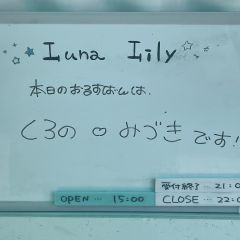 Luna Lily
本日のおるすばんは、
くろの ♡ みづき です!
受付終了 … 21:0
OPEN … 15:00
CLOSE … 22:0